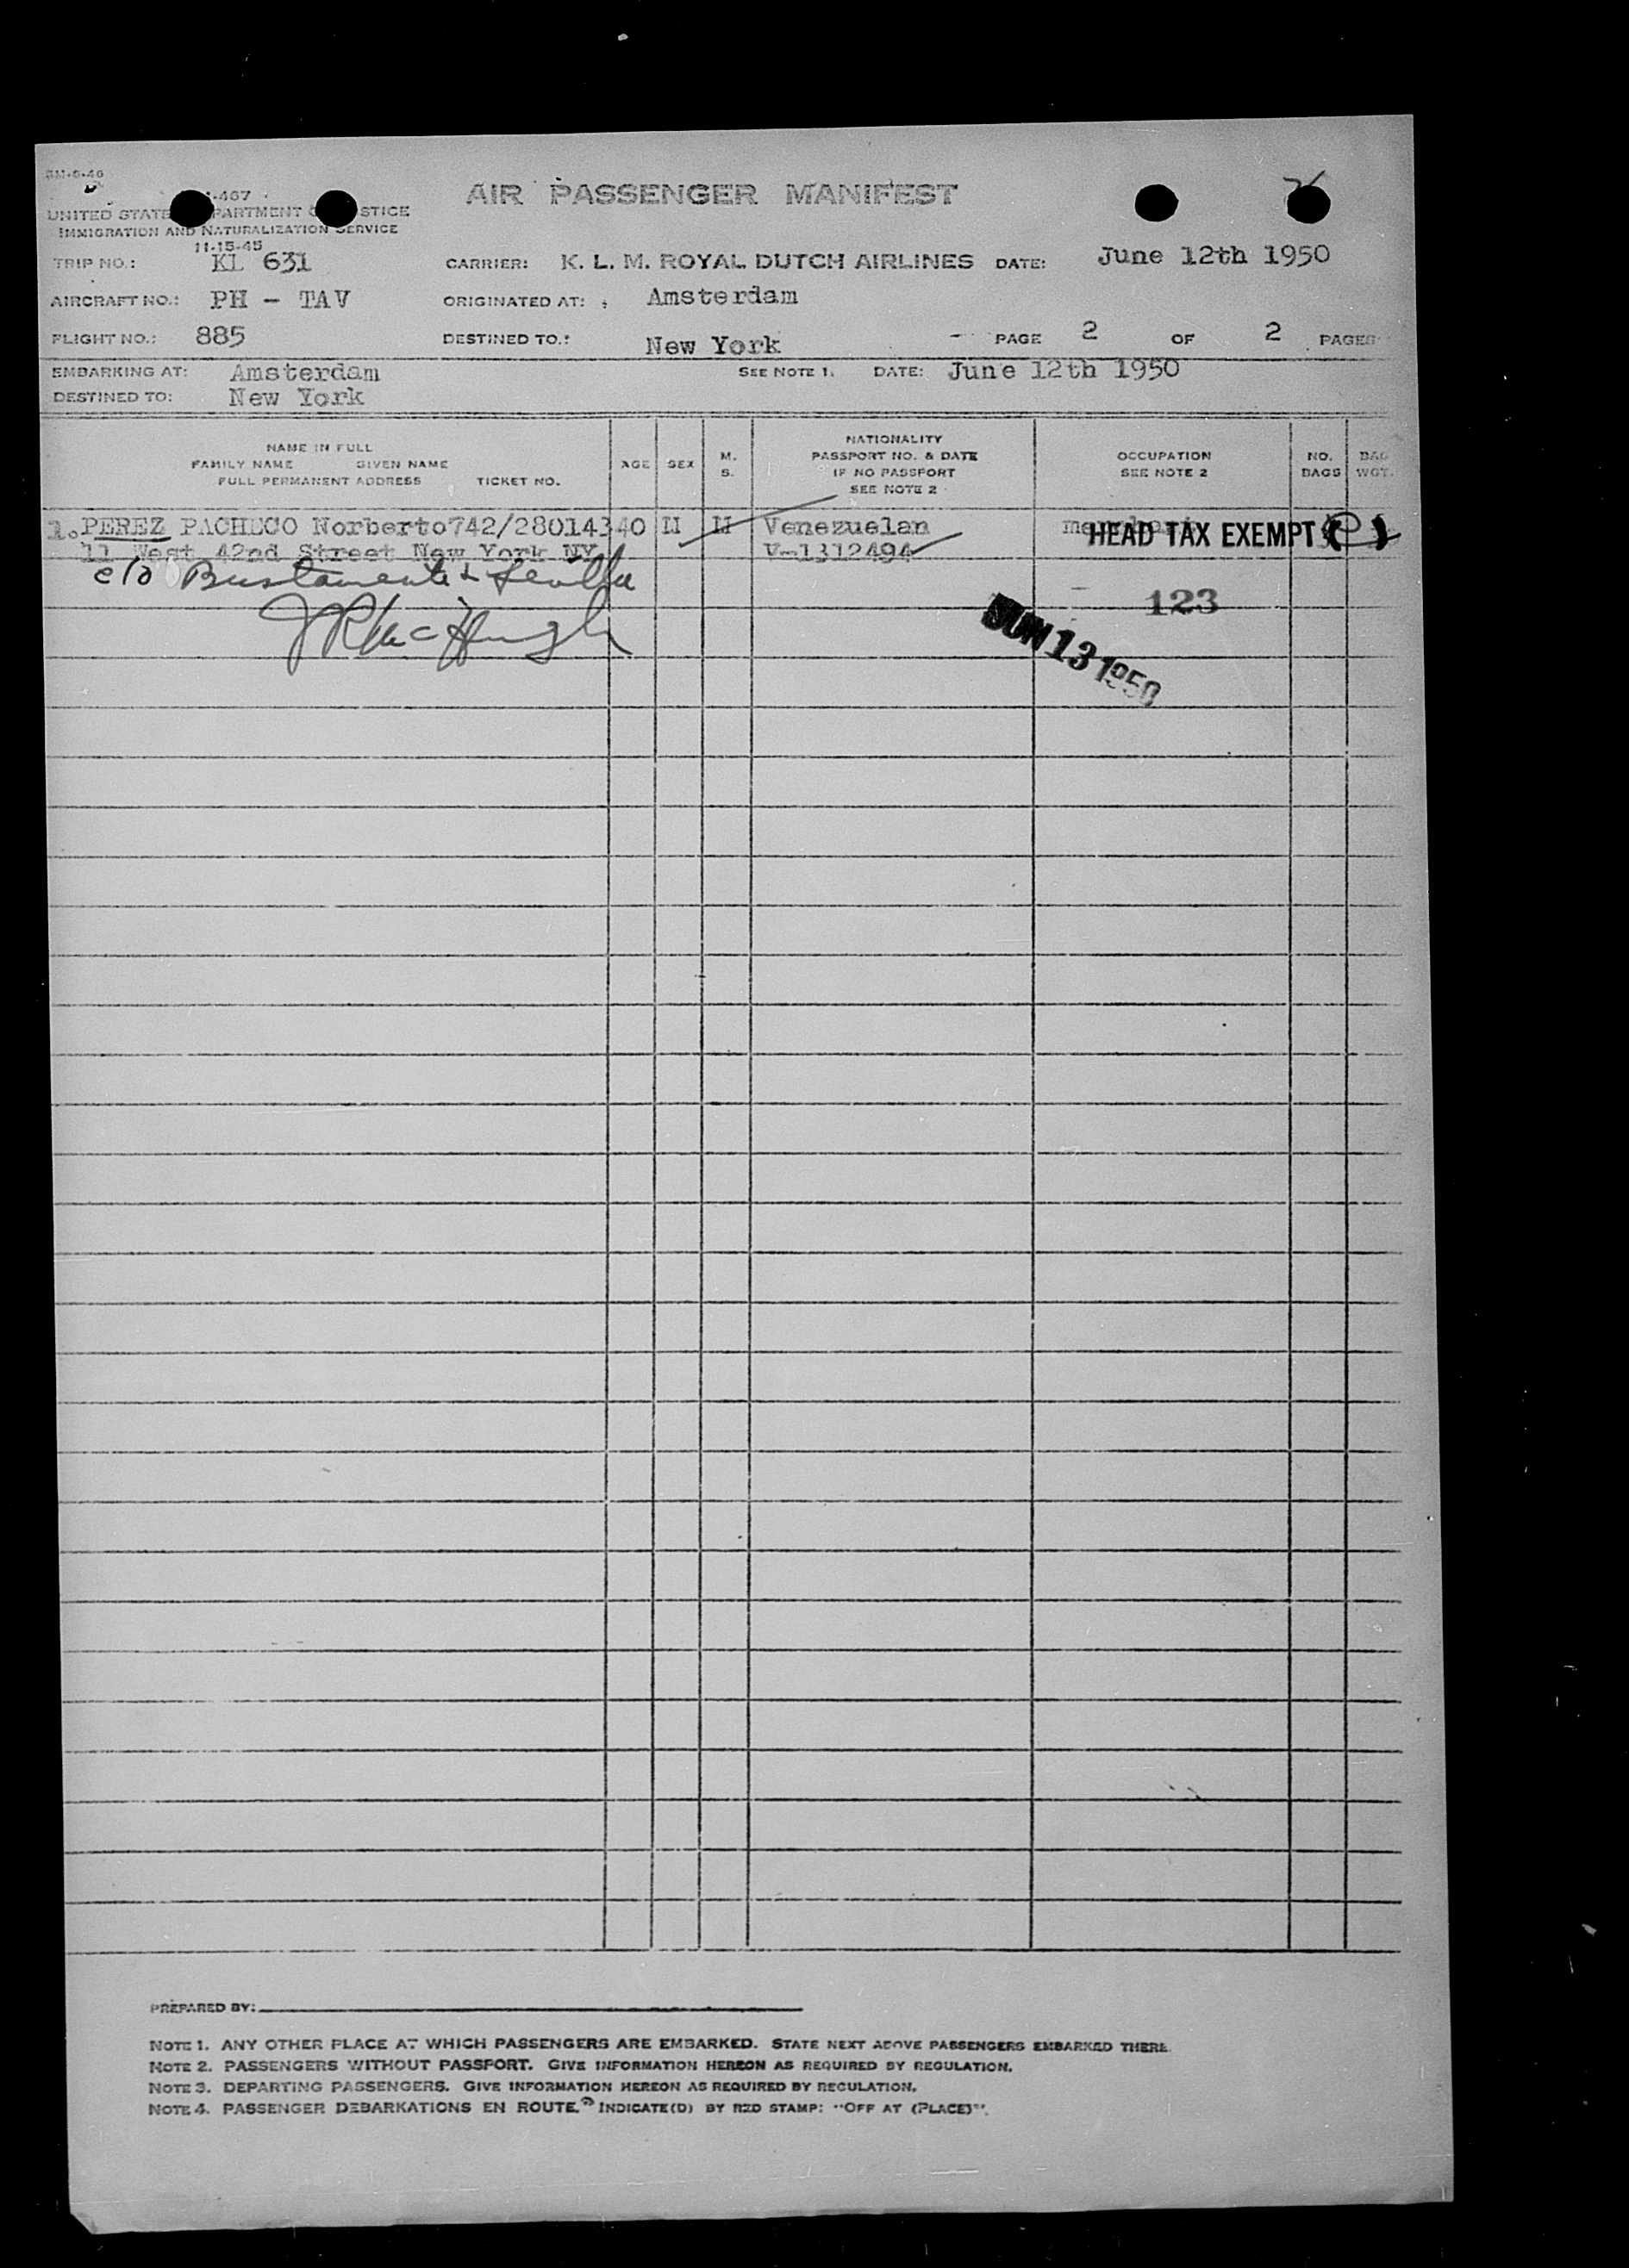 AIR PASSENGER MANIFEST
UNITED STATE PARTMENT STICE
IMMIGRATION AND NATURALIZATION SERVICE
11-15-45
TRIP NO.: KL 631 CARRIER: K. L. M. ROYAL DUTCH AIRLINES DATE: June 12th 1950
AIRCRAFT NO.: PH - TAV ORIGINATED AT: Amsterdam
FLIGHT NO.: 885 DESTINED TO.: New York PAGE 2 OF 2 PAGES
EMBARKING AT: Amsterdam SEE NOTE 1. DATE: June 12th 1950
DESTINED TO: New York
NAME IN FULL
FAMILY NAME GIVEN NAME
FULL PERMANENT ADDRESS TICKET NO.
AGE SEX M. S.
NATIONALITY
PASSPORT NO. & DATE
IF NO PASSPORT
SEE NOTE 2
OCCUPATION
SEE NOTE 2
NO. BAGS
BAG WGT.
1. PEREZ PACHECO Norberto 742/280143 40 M M Venezuelan HEAD TAX EXEMPT
11 West 42nd Street New York NY V-1312494
c/o Bustamente &
123
JUN 13 1950
PREPARED BY:
NOTE 1. ANY OTHER PLACE AT WHICH PASSENGERS ARE EMBARKED. STATE NEXT ABOVE PASSENGERS EMBARKED THERE.
NOTE 2. PASSENGERS WITHOUT PASSPORT. GIVE INFORMATION HEREON AS REQUIRED BY REGULATION.
NOTE 3. DEPARTING PASSENGERS. GIVE INFORMATION HEREON AS REQUIRED BY REGULATION.
NOTE 4. PASSENGER DEBARKATIONS EN ROUTE. INDICATE(D) BY RED STAMP: "OFF AT (PLACE)".